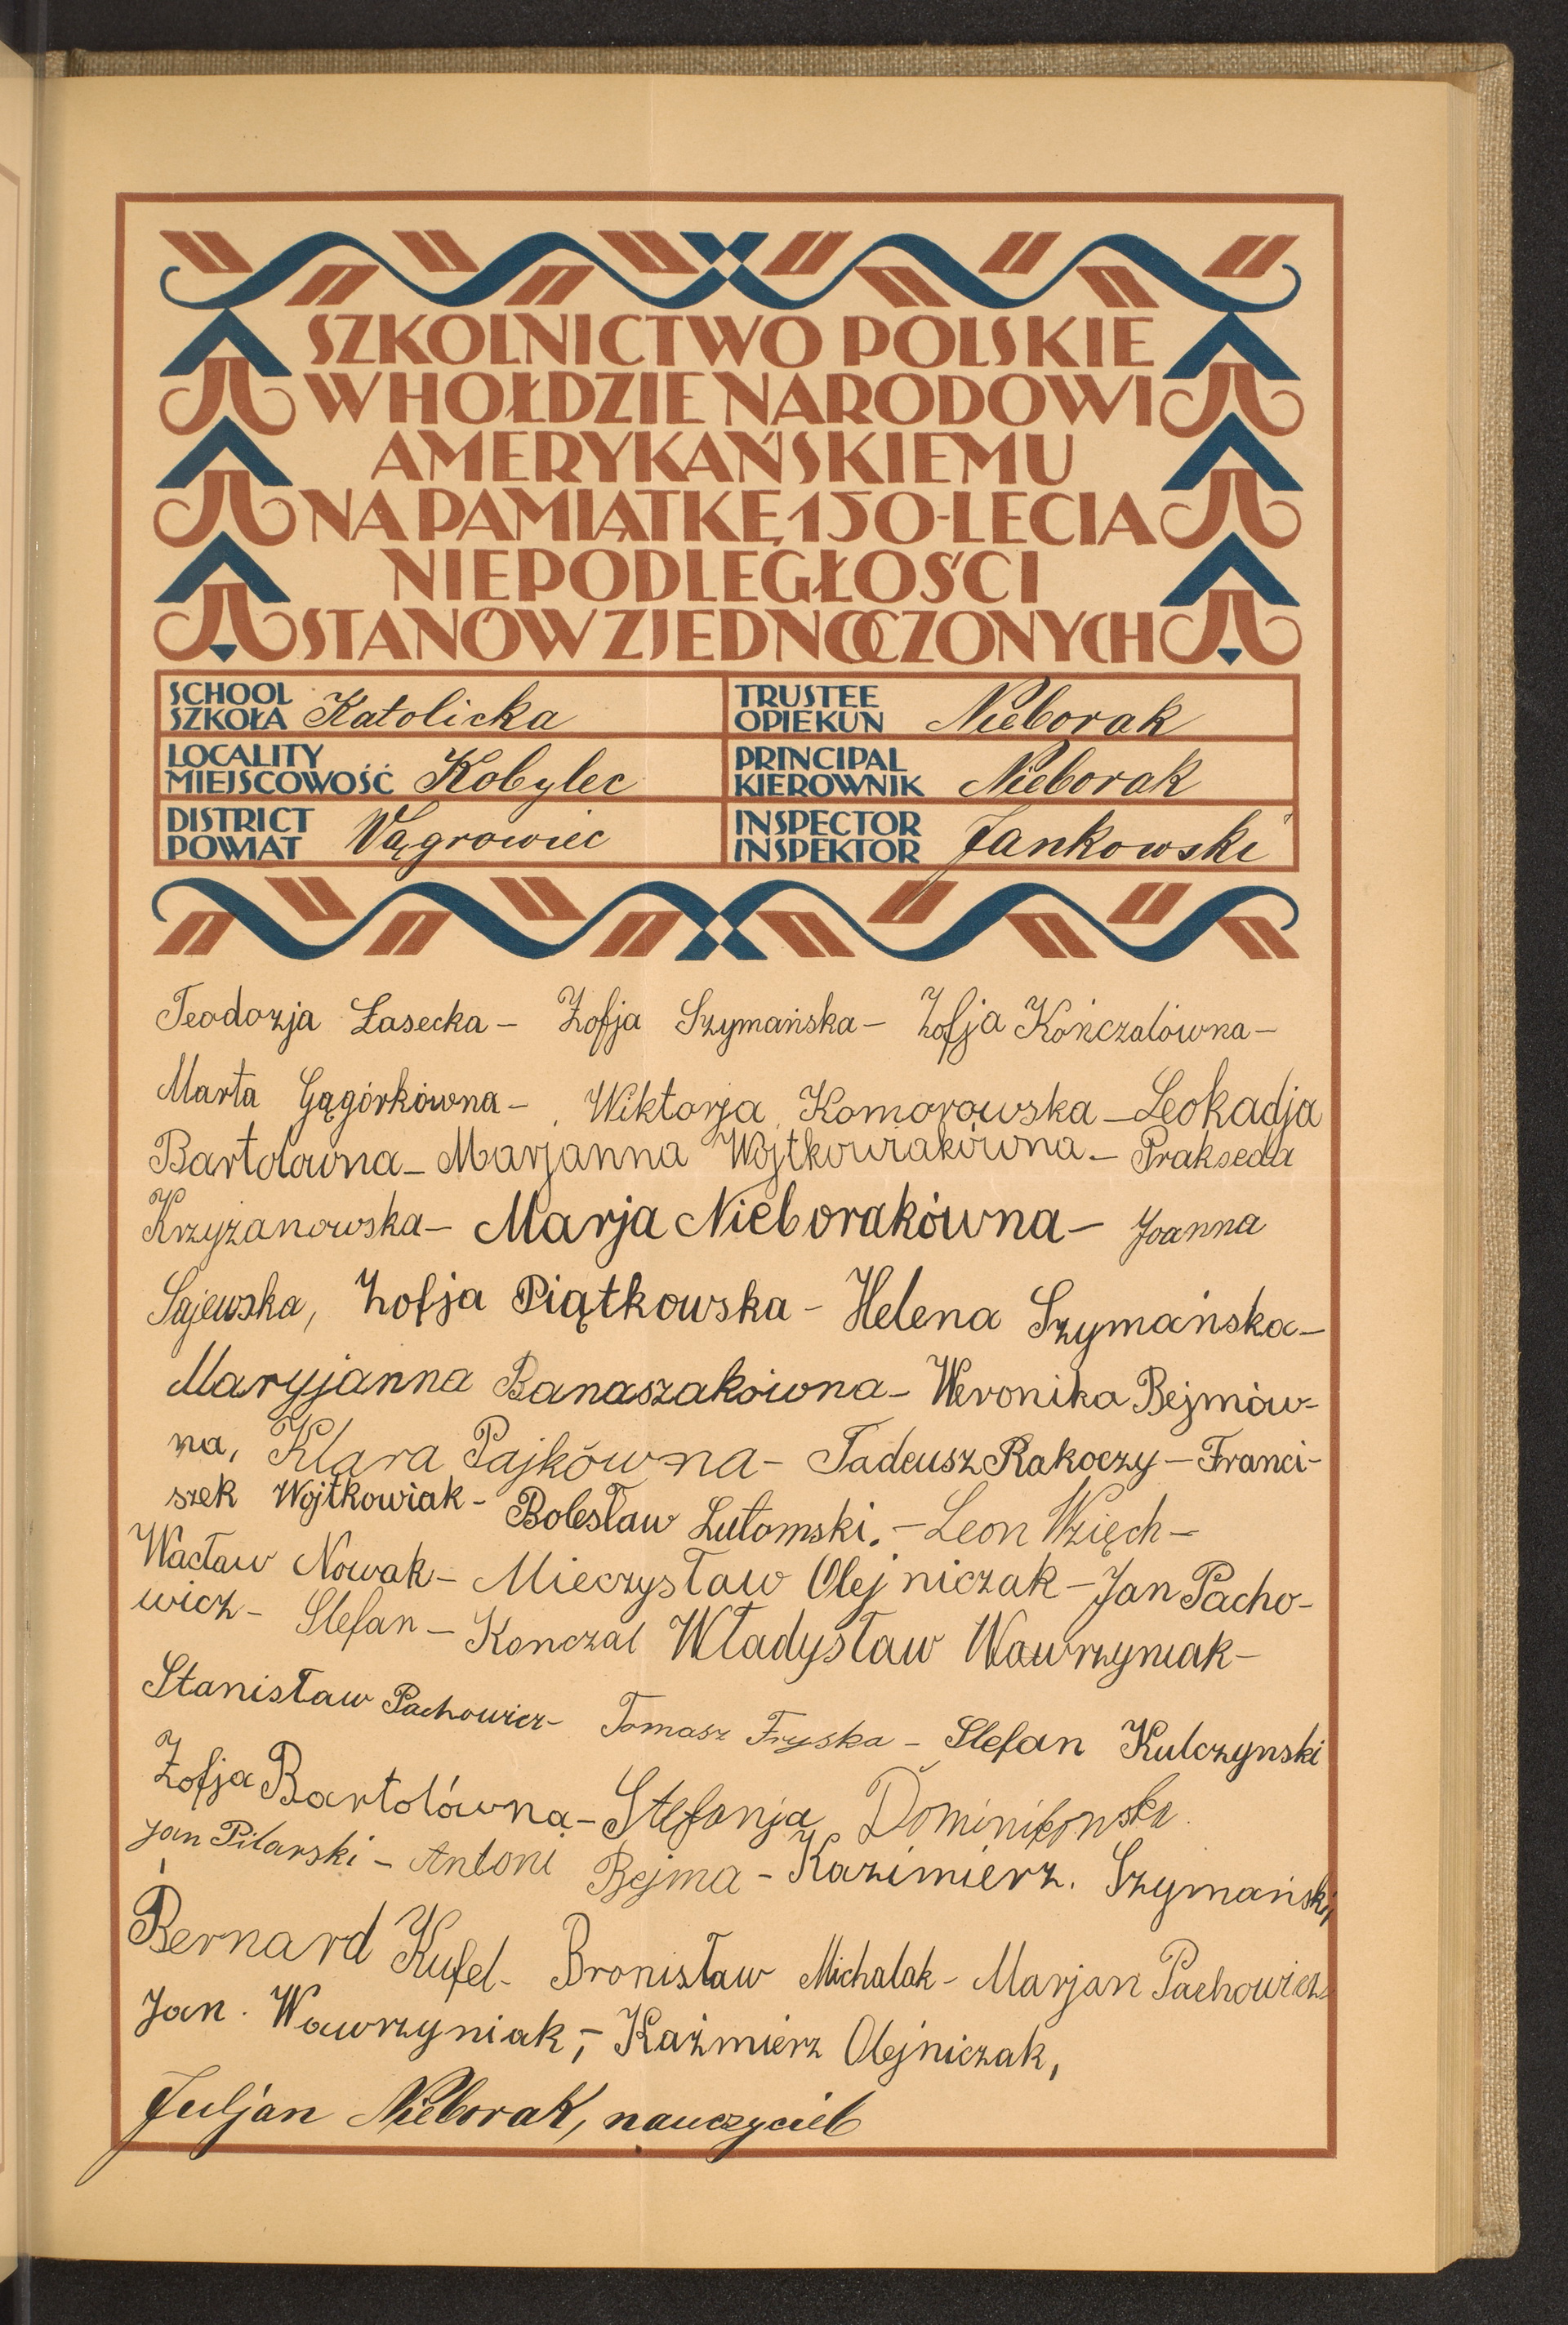 SZKOLNICTWO POLSKIE
W HOŁDZIE NARODOWI
AMERYKAŃSKIEMU
NA PAMIĄTKĘ 150-LECIA
NIEPODLEGŁOŚCI
STANÓW ZJEDNOCZONYCH
SCHOOL
SZKOŁA Katolicka
TRUSTEE
OPIEKUN Nieborak
LOCALITY
MIEJSCOWOŚĆ Kobylec
PRINCIPAL
KIEROWNIK Nieborak
DISTRICT
POWIAT Wągrowiec
INSPECTOR
INSPEKTOR Jankowski
Teodozja Łasecka – Zofja Szymańska – Zofja Kończalówna –
Marta Gągórkówna – Wiktorja Komorowska – Leokadja
Bartolówna – Marjanna Wojtkowiakówna – Prakseda
Krzyżanowska – Marja Nieborakówna – Joanna
Sajewska, Zofja Piątkowska – Helena Szymańska –
Maryjanna Banaszakówna – Weronika Bejmów-
na, Klara Pajkówna – Tadeusz Rakoczy – Franci-
szek Wojtkowiak – Bolesław Lutomski. – Leon Wzięch –
Wacław Nowak – Mieczysław Olejniczak – Jan Pacho-
wicz – Stefan – Konczal Władysław Wawrzyniak –
Stanisław Pachowicz – Tomasz Fryska – Stefan Kulczynski
Zofja Bartolówna – Stefanja Dominikowska
Jan Pilarski – Antoni Bejma – Kazimierz. Szymański,
Bernard Kufel – Bronisław Michalak – Marjan Pachowicz
Jan. Wawrzyniak, – Kaźmierz Olejniczak,
Juljan Nieborak, nauczyciel